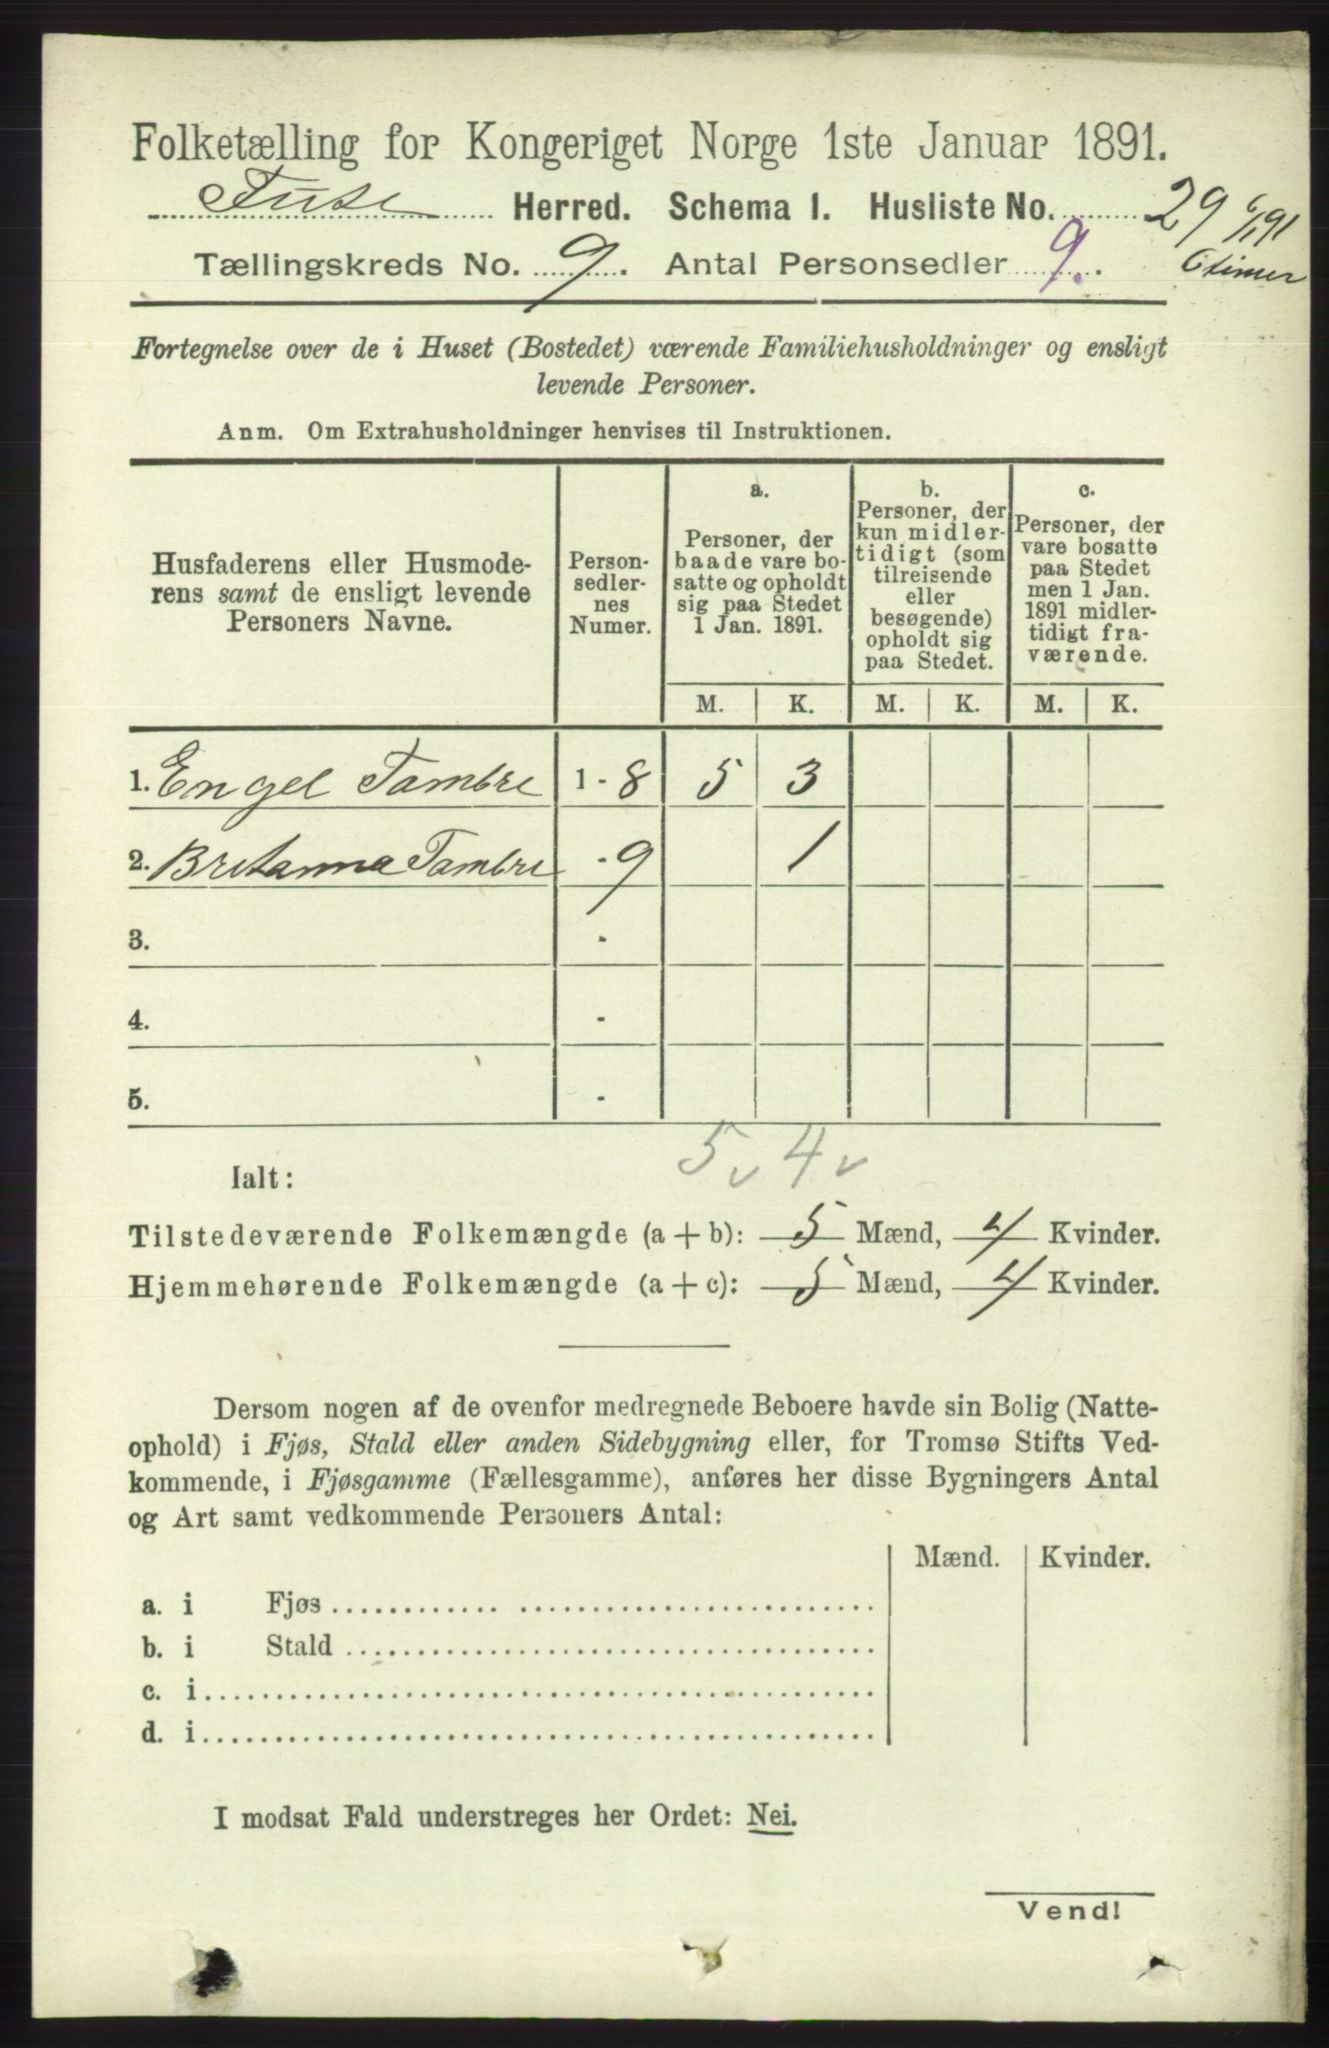 Folketælling for Kongeriget Norge 1ste Januar 1891.
Fuse Herred. Schema I. Husliste No. 29 6/1 91
Tællingskreds No. 9. Antal Personsedler 9. 6 timer
Fortegnelse over de i Huset (Bostedet) værende Familiehusholdninger og ensligt
levende Personer.
Anm. Om Extrahusholdninger henvises til Instruktionen.
Husfaderens eller Husmode-
rens samt de ensligt levende
Personers Navne.
Person-
sedler-
nes
Numer.
a.
Personer, der
baade vare bo-
satte og opholdt
sig paa Stedet
1 Jan. 1891.
b.
Personer, der
kun midler-
tidigt (som
tilreisende
eller
besøgende)
opholdt sig
paa Stedet.
c.
Personer, der
vare bosatte
paa Stedet
men 1 Jan.
1891 midler-
tidigt fra-
værende.
M. K. M. K. M. K.
1. Engel Tambre 1 - 8 5 3
2. Britanna Tambre - 9 1
3. -
4. -
5. -
5 v 4 v
Ialt:
Tilstedeværende Folkemængde (a + b): 5 Mænd, 4 Kvinder.
Hjemmehørende Folkemængde (a + c): 5 Mænd, 4 Kvinder.
Dersom nogen af de ovenfor medregnede Beboere havde sin Bolig (Natte-
ophold) i Fjøs, Stald eller anden Sidebygning eller, for Tromsø Stifts Ved-
kommende, i Fjøsgamme (Fællesgamme), anføres her disse Bygningers Antal
og Art samt vedkommende Personers Antal:
Mænd. Kvinder.
a. i Fjøs
b. i Stald
c. i
d. i
I modsat Fald understreges her Ordet: Nei.
Vend!